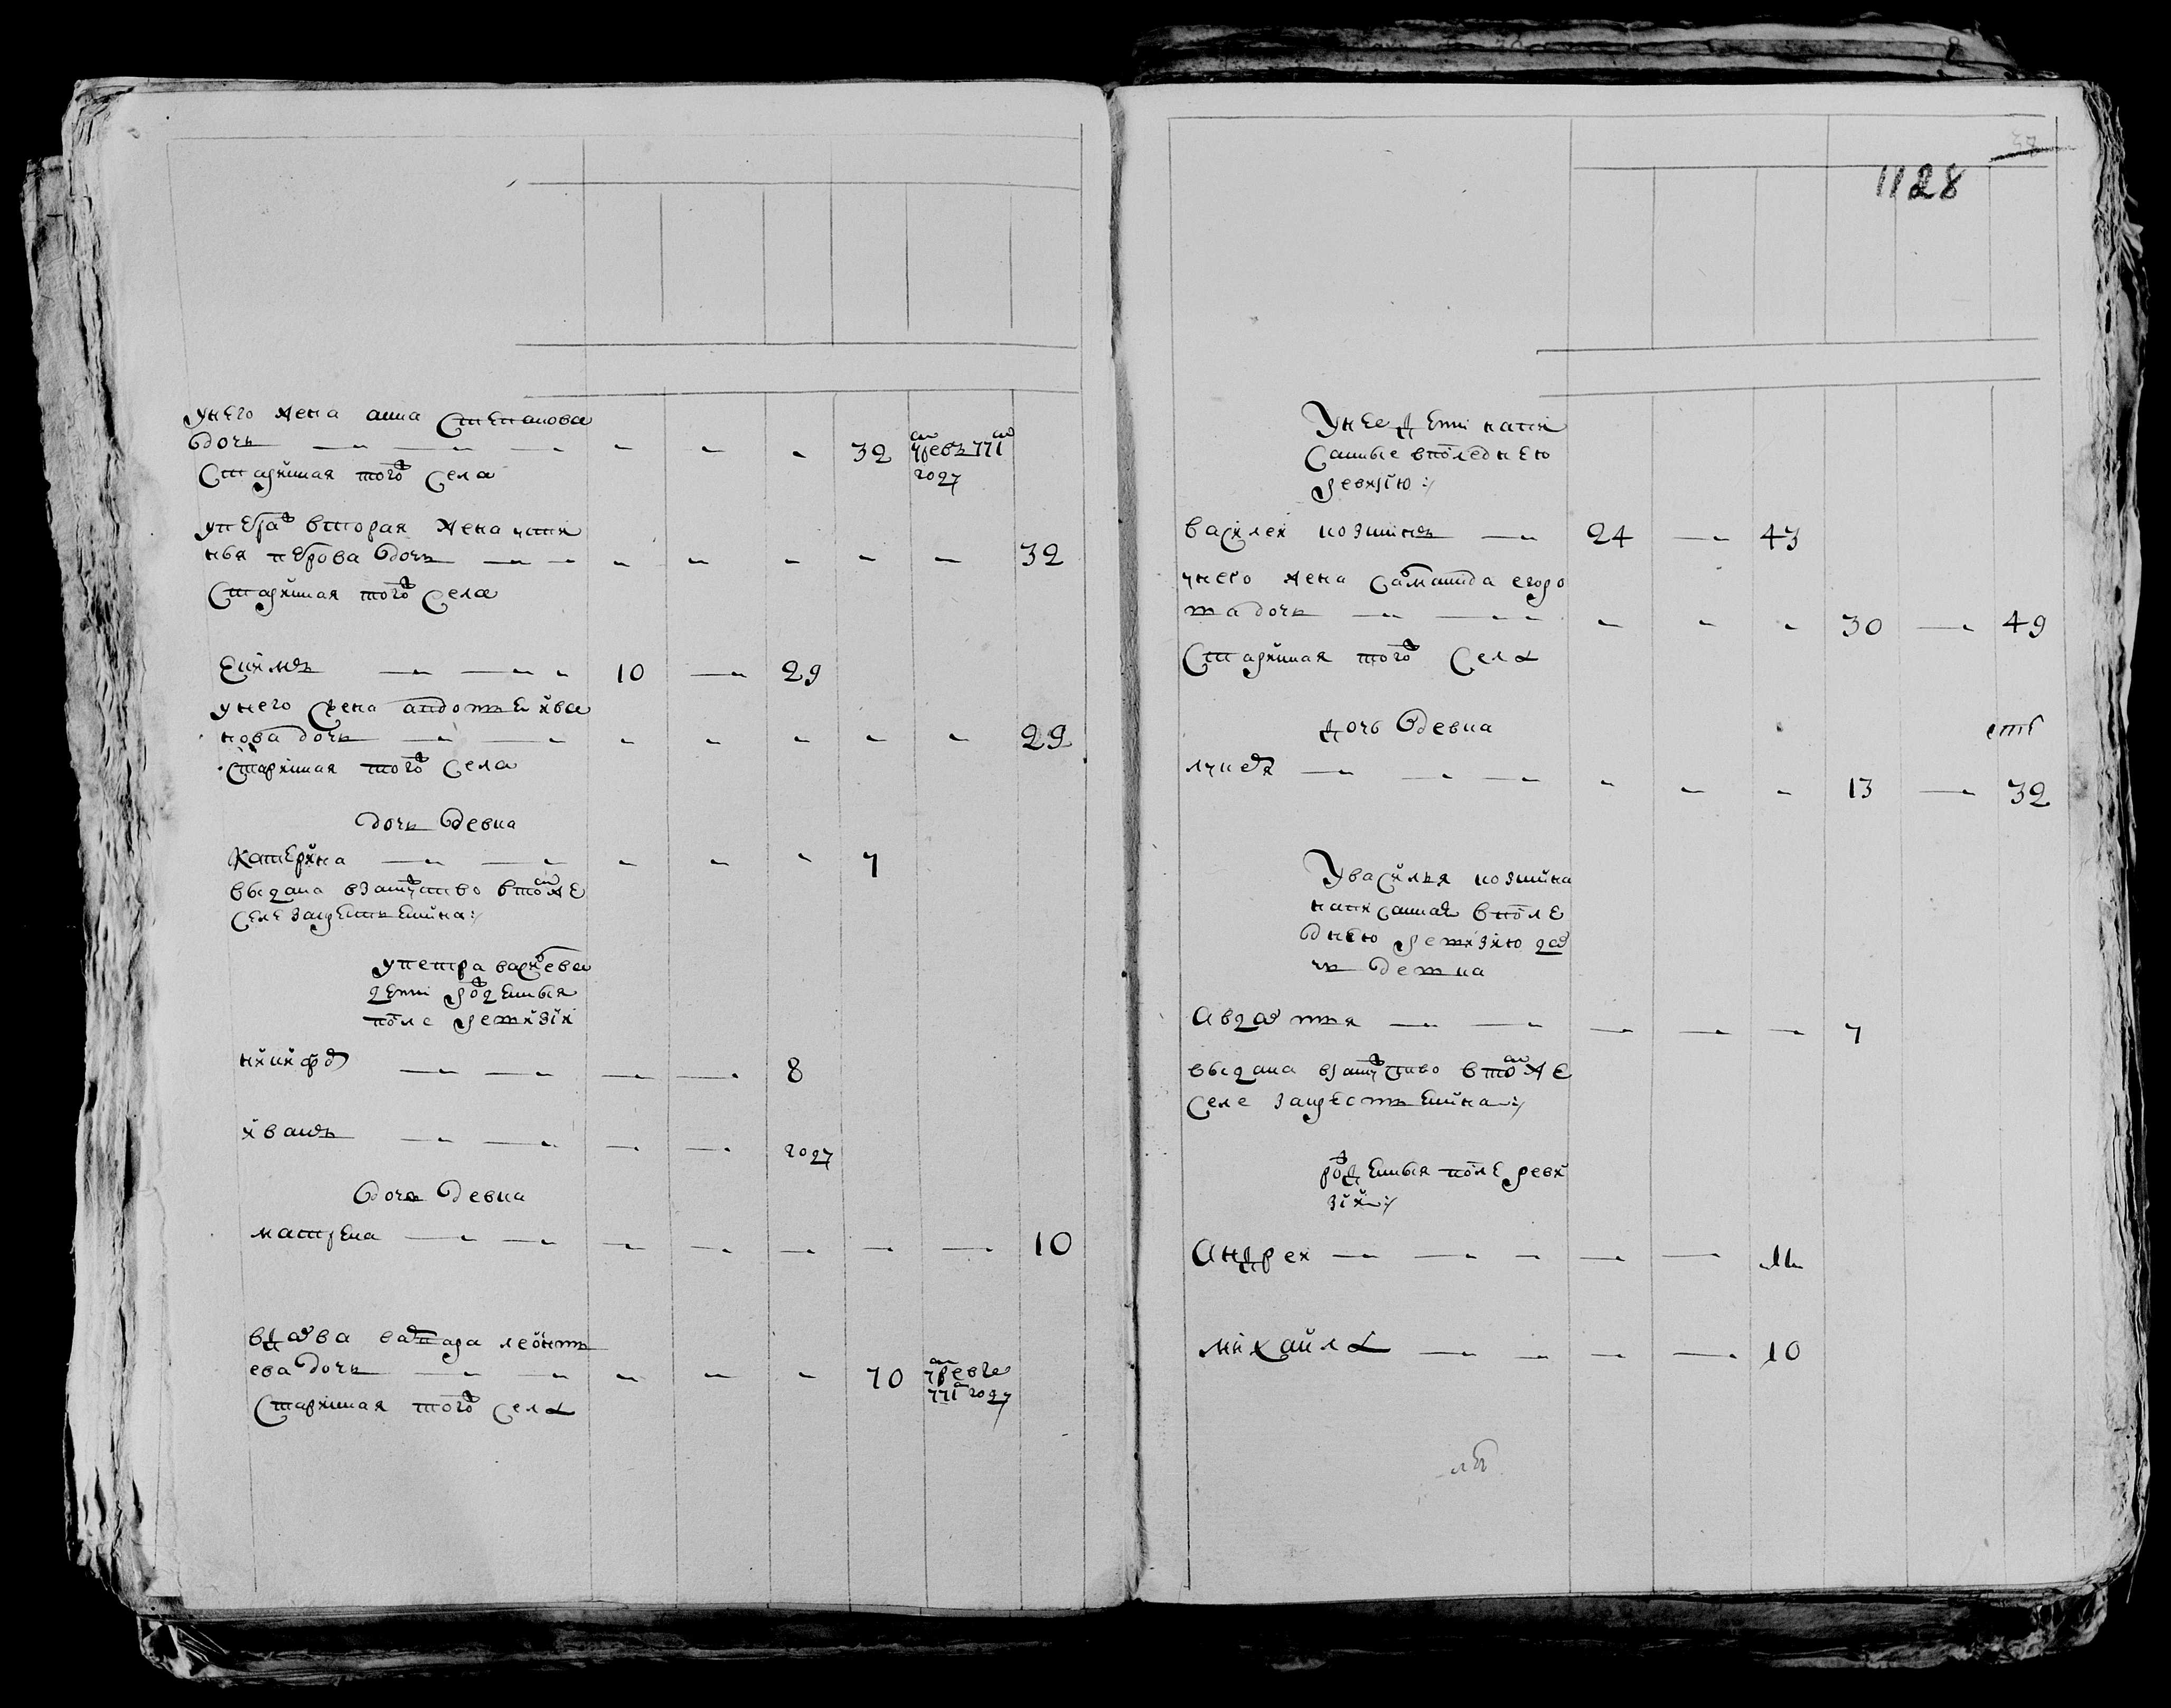 унего жена анна степанова
дочь 32 умре въ 771
году
старинная того села
упетра вторая жена усти
нья петрова дочь 32
старинная того села
ефимъ 10 29
унего жена авдотья ива
нова дочь 29
старинная того села
дочь девка
катерина 7
выдана взамужство втомже
селе закрестьянина:/
упетра васильева
дети рожденныя
после ревизии
никифоръ 8
иванъ году
дочь девка
матрена 10
вдова варвара леонть
ева дочь 70 умре в
771 году
старинная того села
1128
Унее дети напи
санные впоследнею
ревизию:/
василей козминъ 24 43
унего жена соломанида его
дочь 30 49
старинная того села
дочь девка
лукерья 13 32
Увасилья козмина
написанная впосле
днею ревизию до
чь девка
авдотья 7
выдана взамужство втомже
селе закрестьянина:/
рожденныя после реви
зии:/
андрей 11
михайла 10